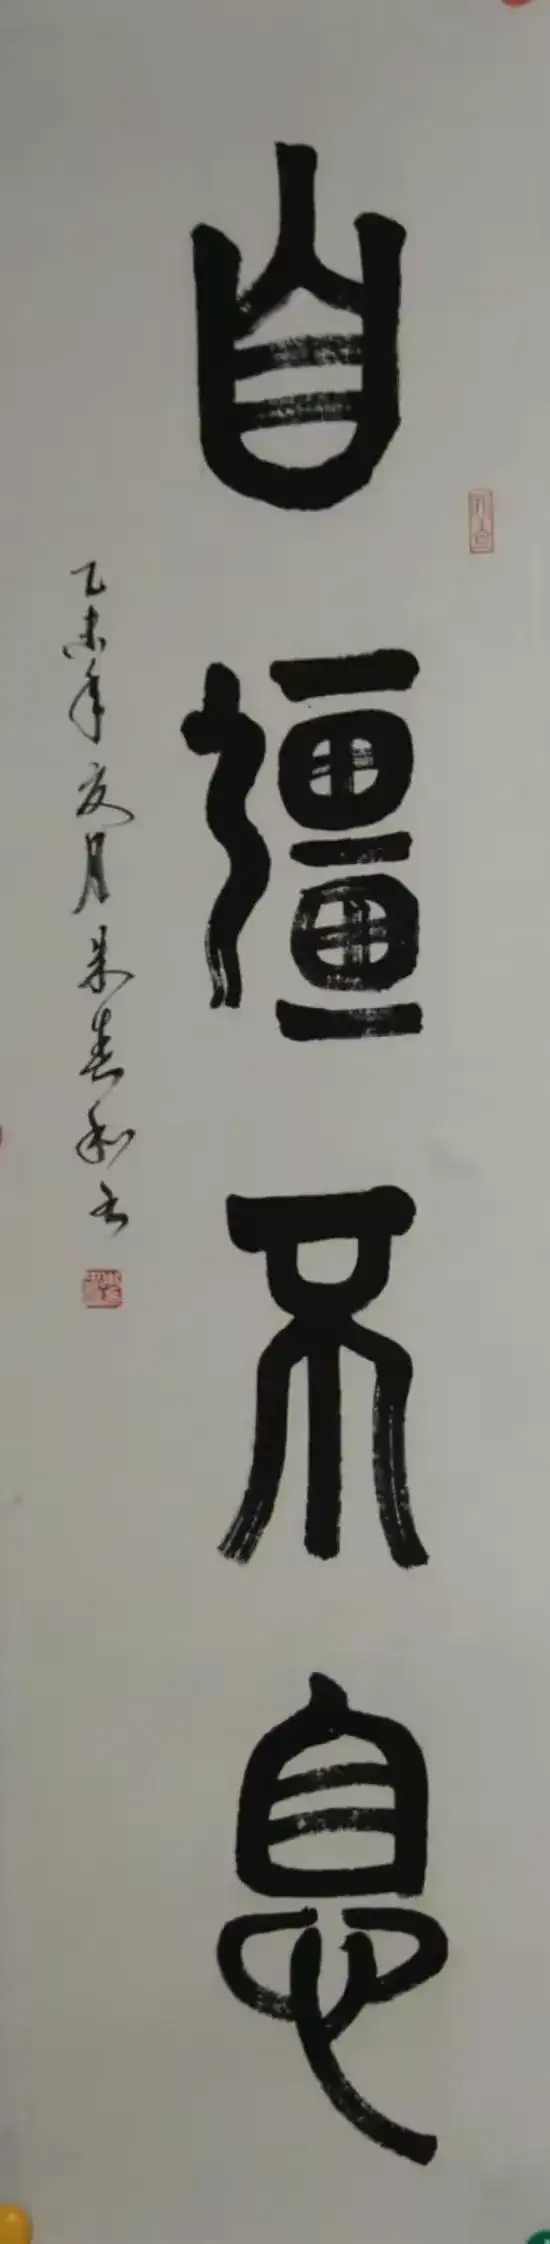 自彊不息
乙未年夏月朱春和书